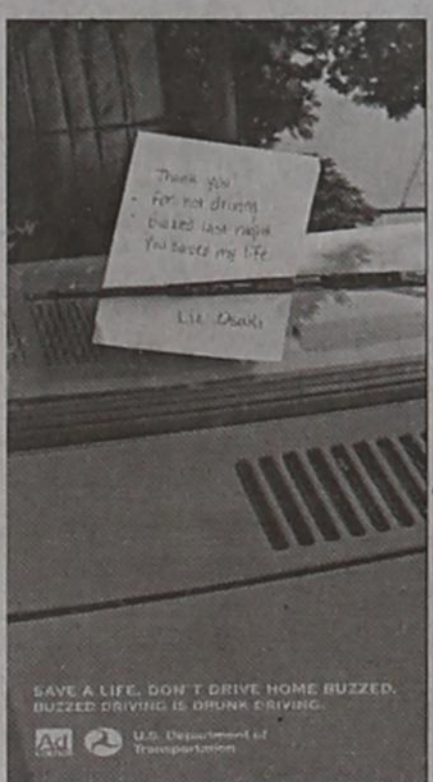 Thank you
For not driving
buzzed last night
You saved my life
Liz Osaki
SAVE A LIFE. DON'T DRIVE HOME BUZZED.
BUZZED DRIVING IS DRUNK DRIVING.
Ad
U.S. Department of
Transportation